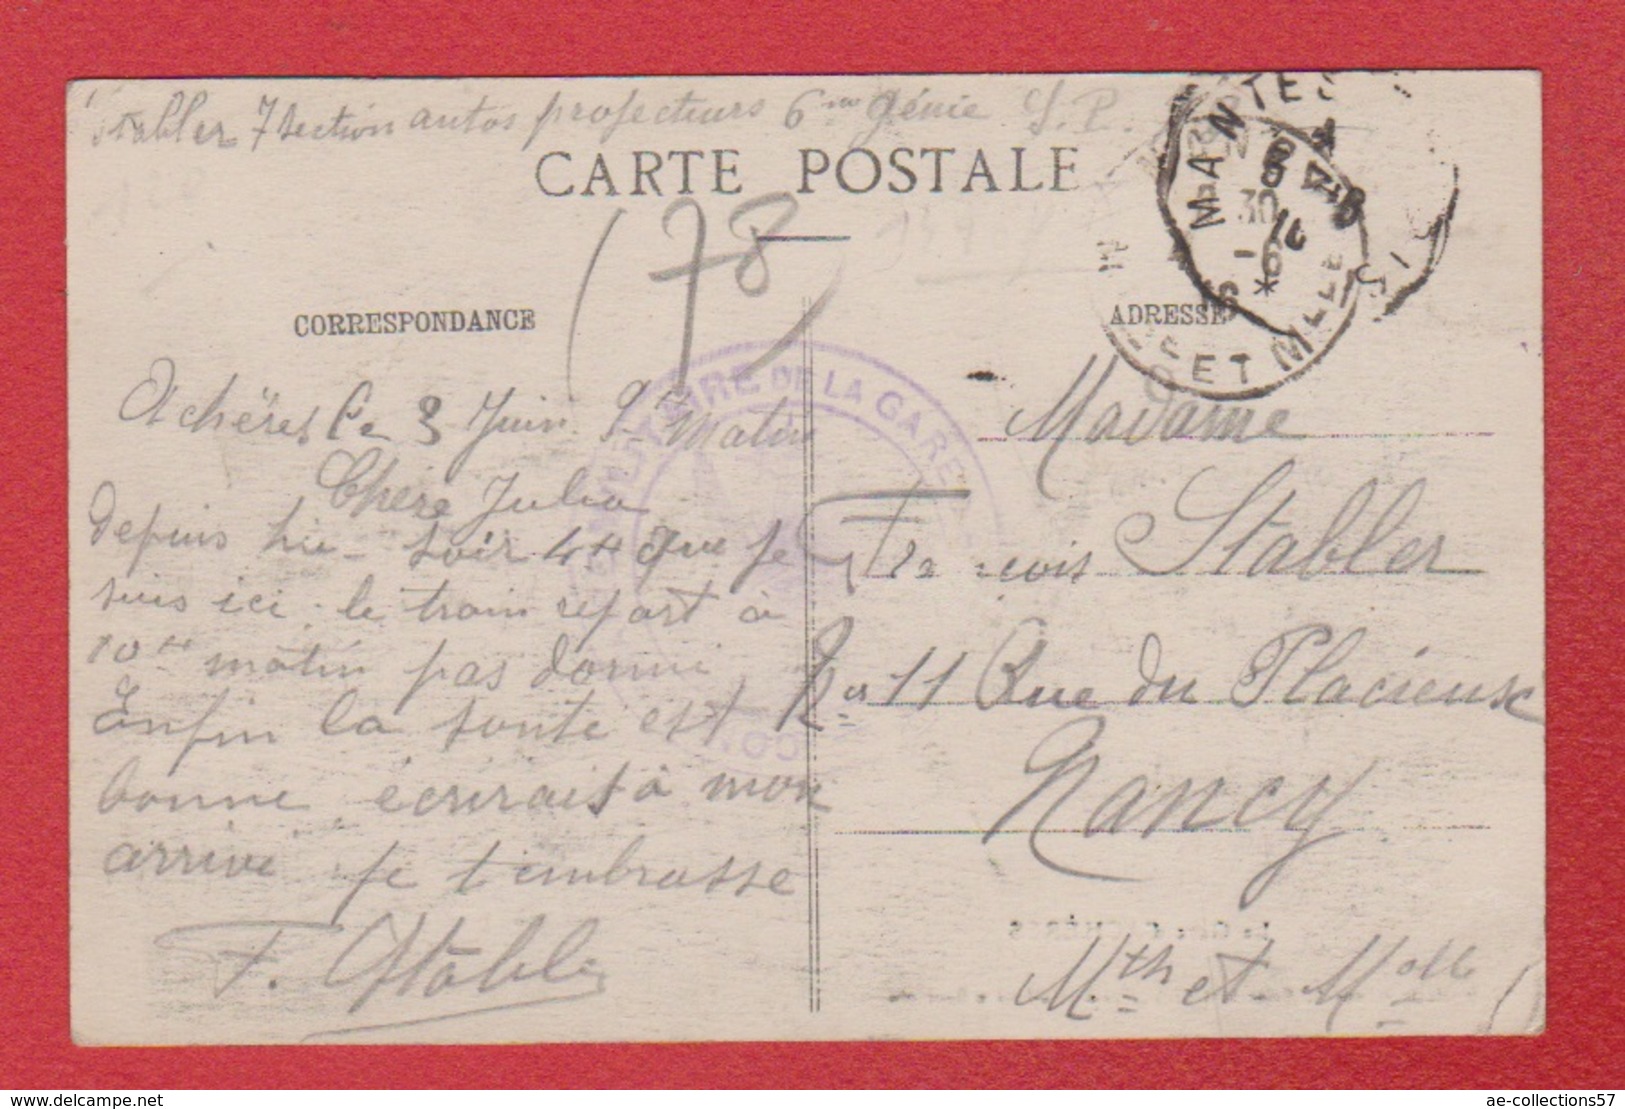 Stabler 7 section autos projecteurs 6me génie S.P.
CARTE POSTALE
(78)
CORRESPONDANCE
ADRESSE
MANTES
ET M
MILITAIRE DE LA GARE
Achères le 3 Juin 9h matin
Chère Julia
depuis hier soir 4H que je
suis ici. le train repart à
10H matin pas dormi
Enfin la santé est
bonne écrirait à mon
arrivé je t'embrasse
F. Stabler
Madame
François Stabler
11 Rue du Placieux
Nancy
Mth et Molle
ae-collections57